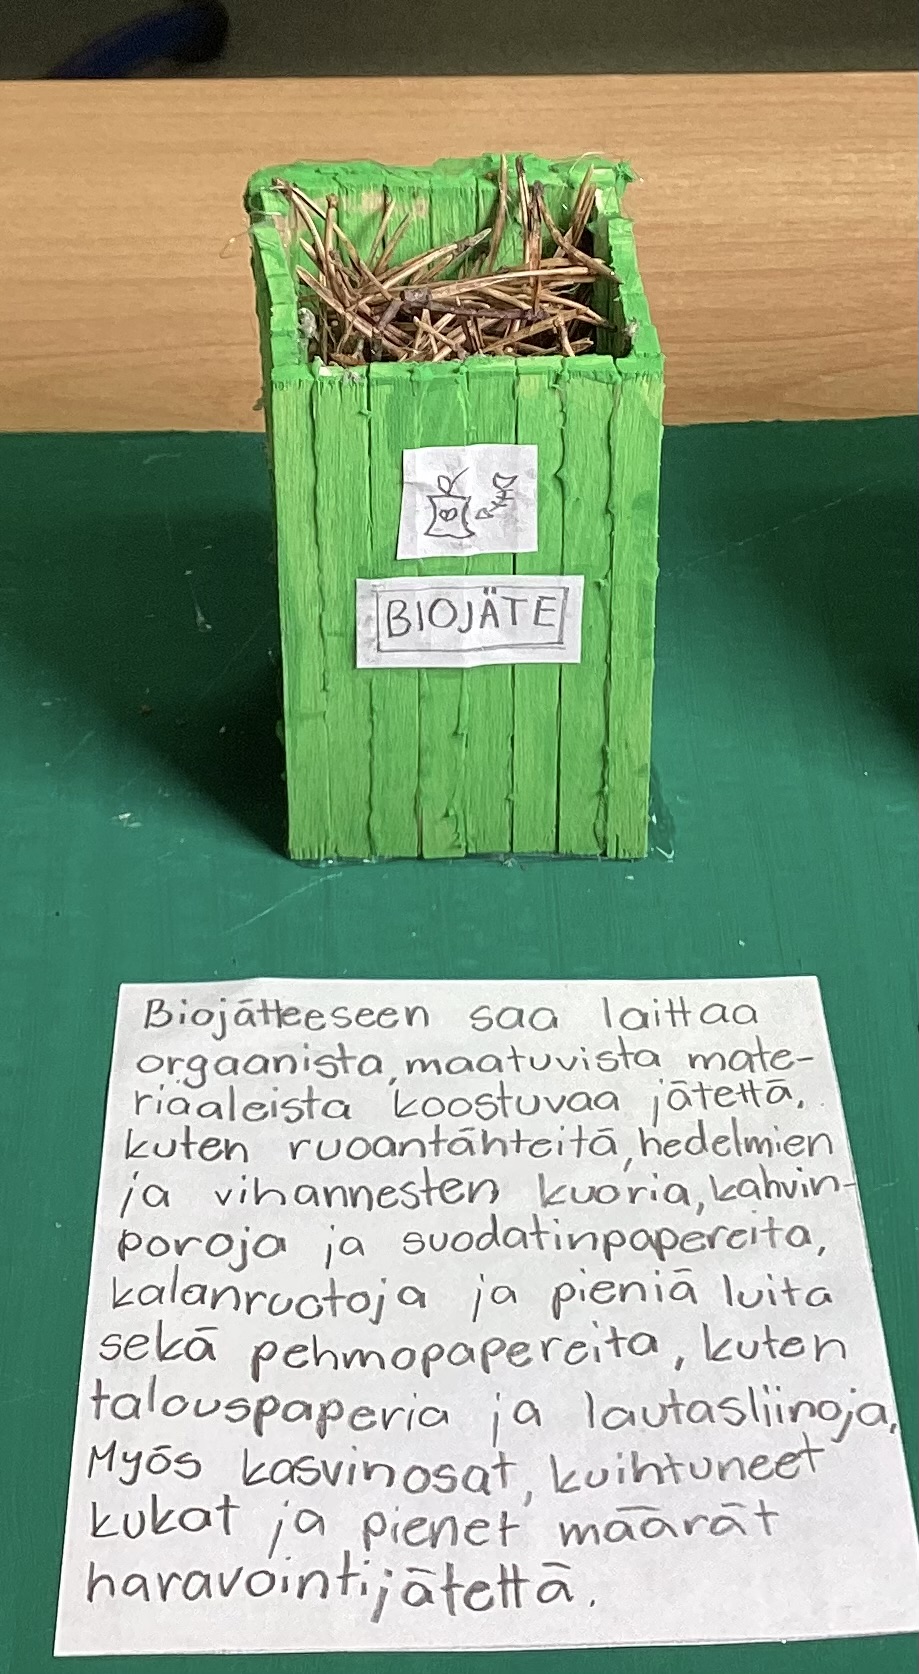 BIOJÄTE
Biojätteeseen saa laittaa
orgaanista, maatuvista mate-
riaaleista koostuvaa jätettä,
kuten ruoantähteitä, hedelmien
ja vihannesten kuoria, kahvin-
poroja ja suodatinpapereita,
kalanruotoja ja pieniä luita
sekä pehmopapereita, kuten
talouspaperia ja lautasliinoja.
Myös kasvinosat, kuihtuneet
kukat ja pienet määrät
haravointijätettä.